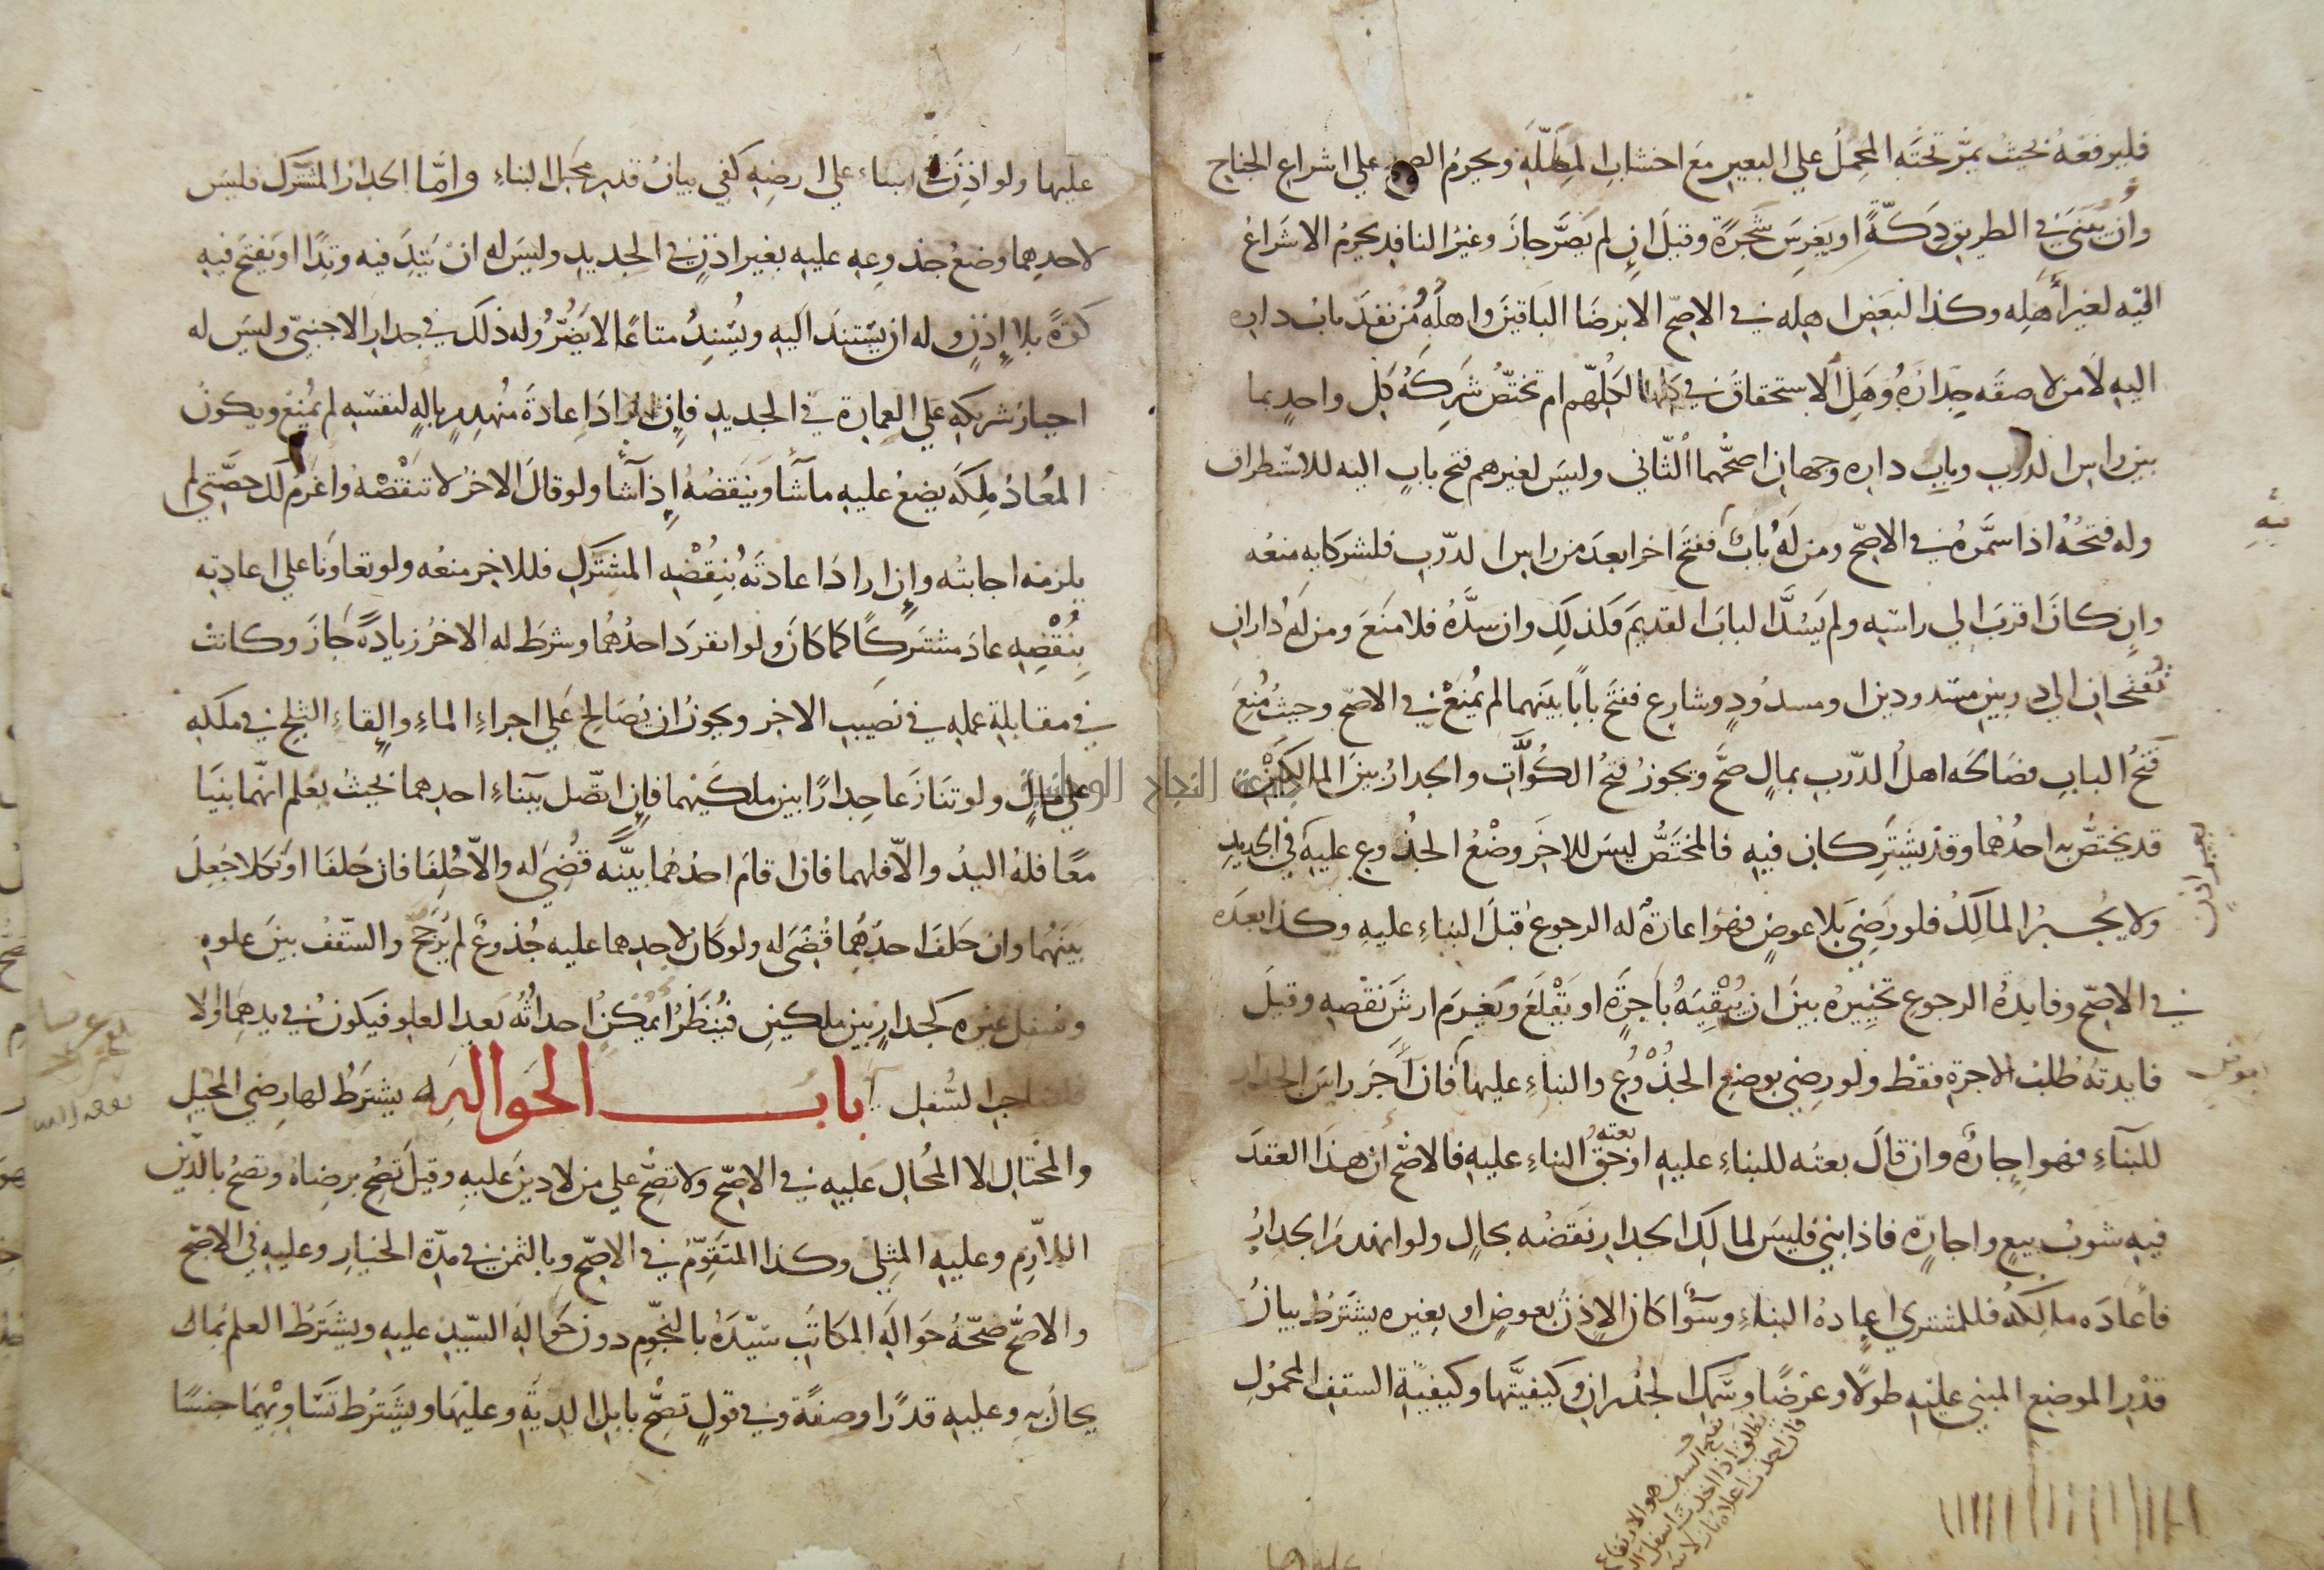 فليرفعه بحيث يمر تحته المحمل على البعير مع اخشاب المظلة ويحرم الصلح على اشراع الجناح
وأن يبني في الطريق دكة او يغرس شجرة وقيل إن لم يضر جاز وغير النافذ يحرم الاشراع
اليه لغير أهله وكذا لبعض اهله في الاصح الا برضا الباقين واهله من نفذ باب داره
اليه لا من لاصقه جداره وهل الاستحقاق في كلها لكلهم ام تختص شركة كل واحد بما
بين راس الدرب وباب داره وجهان اصحهما الثاني وليس لغيرهم فتح باب اليه للاستطراق
وله فتحه اذا سمره في الاصح ومن له باب ففتح اخر ابعد من راس الدرب فلشركايه منعه
وان كان اقرب الي راسه ولم يسد الباب القديم فكذلك وان سده فلا منع ومن له داران
تفتحان الي دربين مسدودين او مسدود وشارع ففتح بابا بينهما لم يمنع في الاصح وحيث مُنع
فتح الباب فصالحه اهل الدرب بمال صح ويجوز فتح الكوات والجدار بين المالكين
قد يختص به احدهما وقد يشتركان فيه فالمختص ليس للاخر وضع الجذوع عليه في الجديد
ولا يجبر المالك فلو رضي بلا عوض فهو اعارة له الرجوع قبل البناء عليه وكذا بعده
في الاصح وفايدة الرجوع تخييره بين ان يبقيه بأجرة او يقلع ويغرم ارش نقصه وقيل
فايدته طلب الاجرة فقط ولو رضي بوضع الجذوع والبناء عليها فان أجر راس الجدار
للبناء فهو إجارة وان قال بعته للبناء عليه او بعته حق البناء عليه فالاصح ان هذا العقد
فيه شوب بيع واجارة فاذا بني فليس لمالك الجدار نقضه بحال ولو انهدم الجدار
فأعاده مالكه فللمشتري اعادة البناء وسوآ كان الاذن بعوض او بغيره يشترط بيان
قدر الموضع المبني عليه طولا وعرضا وسمك الجدران وكيفيتها وكيفية السقف المحمول
عليها ولو اذن في البناء علي ارضه كفي بيان قدر محل البناء واما الجدار المشترك فليس
لاحدهما وضع جذوعه عليه بغير اذن في الجديد وليس له ان يتد فيه وتدا او يفتح فيه
كوة بلا إذن وله ان يستند اليه ويسند متاعا لا يضر وله ذلك في جدار الاجنبي وليس له
اجبار شريكه علي العمارة في الجديد فإن اراد اعادة منهدم بآلة لنفسه لم يمنع ويكون
المعاد ملكه يضع عليه ما شآ وينقضه إذا شآ ولو قال الاخر لا تنقضه واغرم لك حصتي لم
يلزمه اجابته وإن اراد اعادته بنقضه المشترك فللاخر منعه ولو تعاونا علي اعادته
بنقضه عاد مشتركا كما كان ولو انفرد احدهما وشرط له الاخر زيادة جاز وكانت
في مقابلة عمله في نصيب الاخر ويجوز ان يصالح علي اجراء الماء وإلقاء الثلج في ملكه
علي مال ولو تنازعا جدارا بين ملكيهما فإن اتصل ببناء احدهما بحيث يعلم انهما بنيا
معا فله اليد والا فلهما فان اقام احدهما بينة قضي له والا حلفا فان حلفا او نكلا جعل
بينهما وان حلف احدهما قضي له ولو كان لاحدهما عليه جذوع لم يرجح والسقف بين علوه
وسفل غيره كجدار بين ملكين فينظر أيمكن احداثه بعد العلو فيكون في يدهما او لا
فلصاحب السفل باب الحوالة يشترط لها رضي المحيل
والمحتال لا المحال عليه في الاصح ولا تصح علي من لا دين عليه وقيل تصح برضاه وتصح بالدين
اللازم وعليه المثلي وكذا المتقوم في الاصح وبالثمن في مدة الخيار وعليه في الاصح
والاصح صحة حوالة المكاتب سيده بالنجوم دون حوالة السيد عليه ويشترط العلم بما
يحال به وعليه قدرا وصفة وفي قول تصح بابل الدية وعليها ويشترط تساويهما جنسا